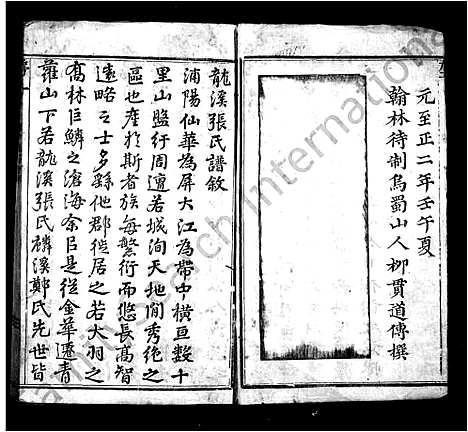 元至正二年壬午夏
翰林待制烏蜀山人柳貫道傳撰
龍溪張氏譜敘
浦陽仙華為屏大江為帶中橫亘數十
里山盤行周遭若城洵天地間秀絕之
區也產於斯者族每繁衍而悠長高智
遠略之士多繇他郡徙居之若大羽之
喬林巨鱗之滄海余臣是從金華遷青
蘿山下若龍溪張氏麟溪鄭氏先世皆